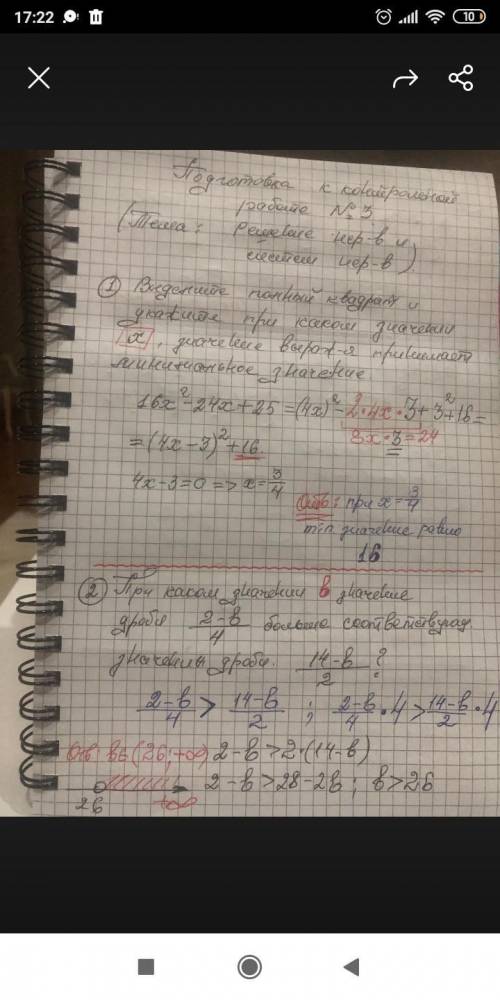 17:22
10
Подготовка к контрольной
работе № 3
(Тема: Решение нер-в и
систем нер-в)
① Выделите полный квадрат и
укажите при каком значении
x, значение выраж-я принимает
минимальное значение
16x² - 24x + 25 = (4x)² - 2·4x·3 + 3² + 16 =
8x·3 = 24
= (4x - 3)² + 16
4x - 3 = 0 => x = 3/4
Отв: при x = 3/4
min значение равно
16
② При каком значении в значение
дроби (2-в)/4 больше соответствующ
значения дроби (14-в)/2 ?
(2-в)/4 > (14-в)/2 ; (2-в)/4 · 4 > (14-в)/2 · 4
Отв: в∈(26; +∞) 2-в > 2·(14-в)
2-в > 28-2в ; в > 26
26 +∞